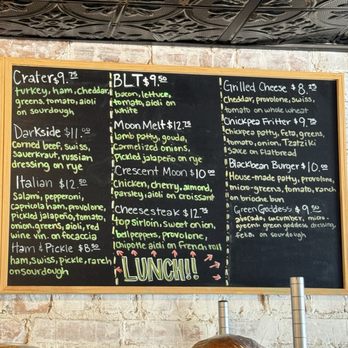 Crater $9.75
turkey, ham, cheddar,
greens, tomato, aioli
on sourdough
Darkside $11.00
Corned beef, swiss,
sauerkraut, russian
dressing on rye
Italian $12.50
Salami, pepperoni,
capicola ham, provolone,
pickled jalapeño, tomato,
onion, greens, aioli, red
wine vin. on focaccia
Ham & Pickle $8.50
ham, swiss, pickle, ranch
on sourdough
BLT $9.50
bacon, lettuce,
tomato, aioli on
white
Moon Melt $12.75
lamb patty, gouda,
Carmelized onions,
Pickled jalapeño on rye
Crescent Moon $10.00
Chicken, cherry, almond,
parsley, aioli on croissant
Cheesesteak $12.75
top sirloin, sweet onion,
bell peppers, provolone,
Chipotle aioli on French roll
LUNCH!!
Grilled Cheese $8.25
Cheddar, provolone, swiss,
tomato on whole wheat
Chickpea Fritter $9.75
chickpea patty, feta, greens,
tomato, onion, Tzatziki
Sauce on flatbread
Blackbean Burger $10.00
House-made patty, provolone,
micro-greens, tomato, ranch
on brioche bun
Green Goddess $9.50
avocado, cucumber, micro-
greens, green goddess dressing,
feta on sourdough